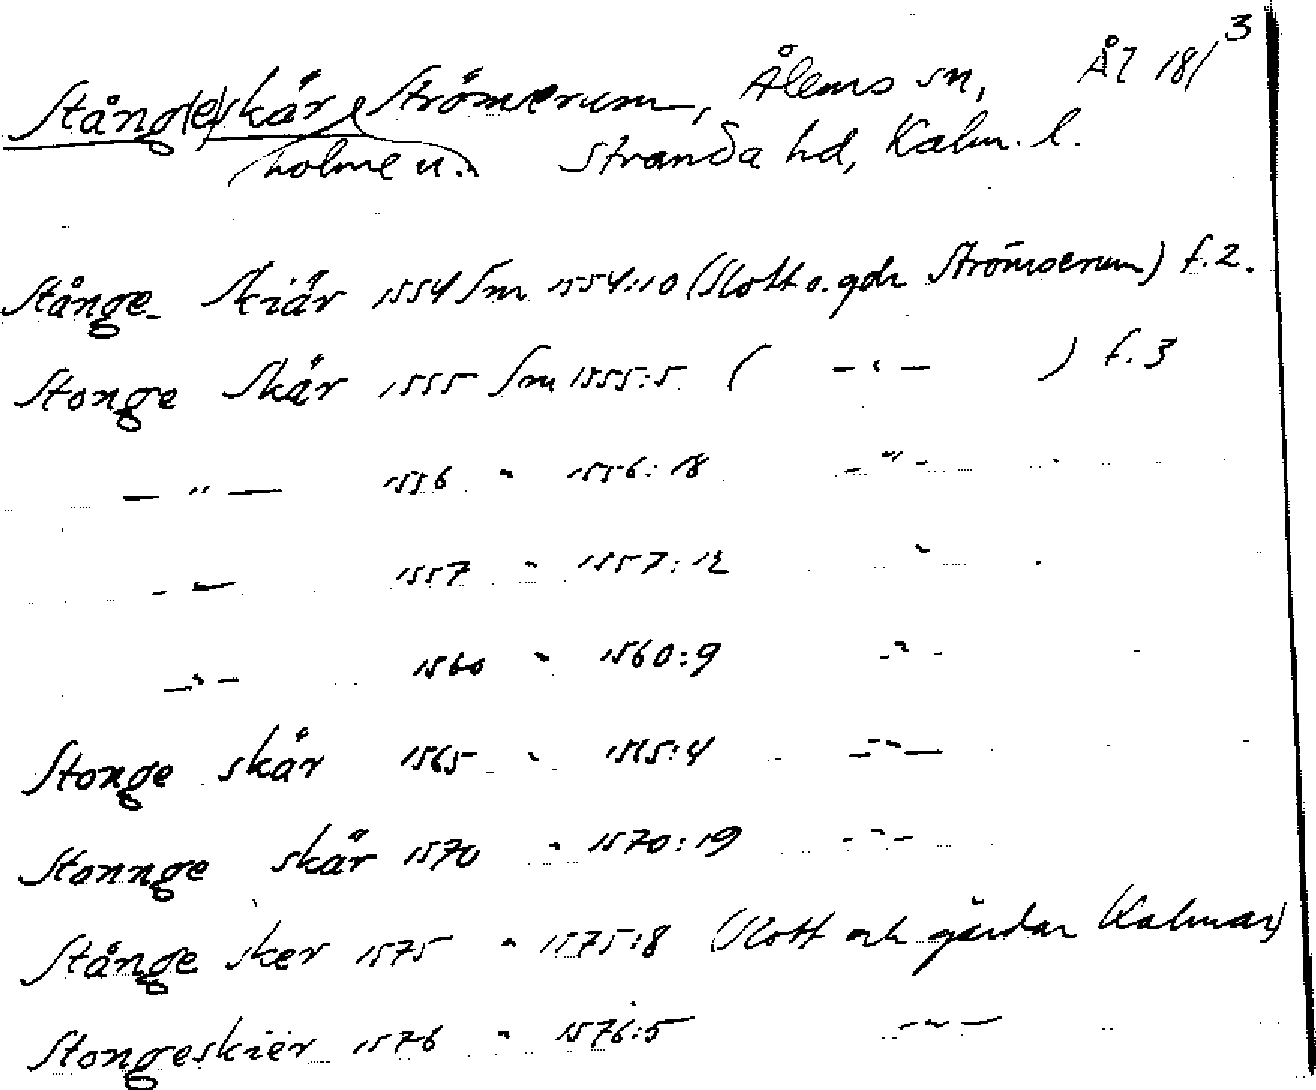 3
Stång(e)skär Strömserum, Ålems sn, Ål 18/
holme u. Stranda hd, Kalm. l.
Stånge skiär 1554 Sm 1554:10 (Slott o. gdr Strömserum) f. 2.
Stonge Skär 1555 Sm 1555:5 ( -"- ) f. 3
-"- 1556 " 1556:18 -"-
-"- 1557 " 1557:12 "
-"- 1560 " 1560:9 -"-
Stonge skår 1565 " 1565:4 -"-
Stonnge skår 1570 " 1570:19 -"-
Stånge sker 1575 " 1575:8 (Slott och gårdar Kalmar)
Stongeskier 1576 " 1576:5 -"-